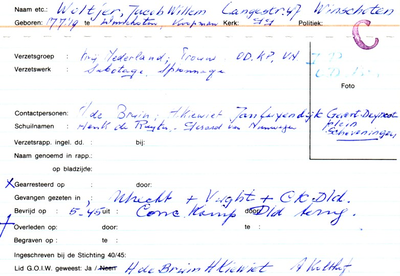 Naam etc.: Woltjer, Jacob Willem Langestr. 47 Winschoten
Geboren: 17 7 19 te Winschoten, Koopman Kerk: Politiek:
C
Verzetsgroep : Trouw OD. KP, VN
Verzetswerk : Sabotage, Spionnage
Foto
Contactpersonen: H de Bruin, H Kiewiet Jan Geert
Schuilnamen : Henk de Ruyter, van Nieuwegen plein Scheveningen
Verzetsrapp. ingel. dd. : bij:
Naam genoemd in rapp.:
op bladzijde:
X Gearresteerd op : door:
Gevangen gezeten in : Utrecht + Vught + CK. Dld.
Bevrijd op : 5-45 uit : Conc. Kamp door: Dld terug.
Overleden op: door: te :
Begraven op : te :
Ingeschreven bij de Stichting 40/45:
Lid G.O.I.W. geweest: Ja / Neen H de Bruin H Kiewiet A